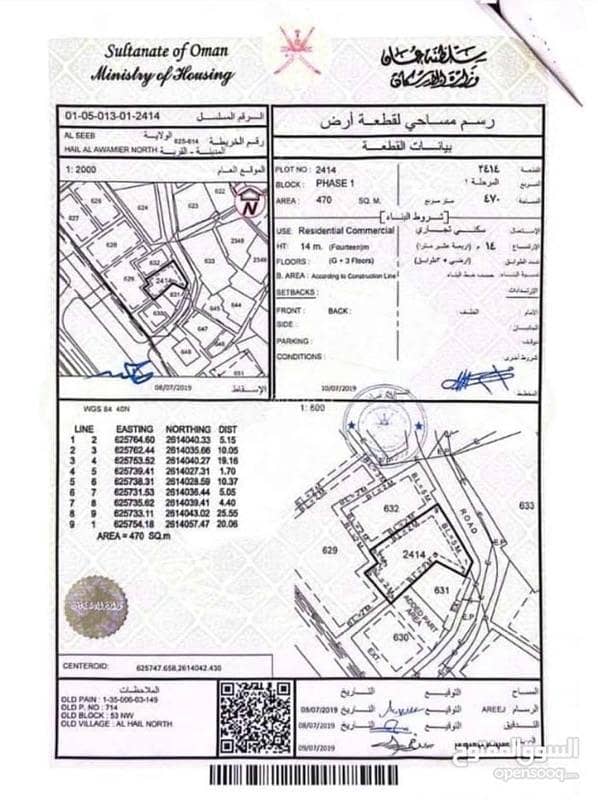 Sultanate of Oman
Ministry of Housing
سلطنة عمان
وزارة الإسكان
01-05-013-01-2414 الرقم المسلسل
AL SEEB الولاية
HAIL AL AWAMIER NORTH المدينة - القرية
625-614 رقم الخريطة
1: 2000 الموقع العام
N
622
624
626
627
628
629
623
632
633
2414
631
630
2348
645
644
647
648
651
08/07/2019 الإسقاط
رسم مساحي لقطعة أرض
بيانات القطعة
PLOT NO : 2414 ٢٤١٤ القطعة
BLOCK : PHASE 1 المرحلة ١ المربع
AREA : 470 SQ. M. متر مربع ٤٧٠ المساحة
شروط البناء
USE: Residential Commercial سكني تجاري الإستعمال
HT: 14 m. (Fourteen)m ١٤ م (أربعة عشر مترا) الإرتفاع
FLOORS : (G + 3 Floors) (أرضي + ٣ طوابق) عدد الطوابق
B. AREA : According to Construction Line حسب خط البناء نسبة البناء
SETBACKS : الإرتدادات
FRONT : BACK : الخلف: الأمام:
SIDE : الجانبان:
PARKING : مواقف:
CONDITIONS : شروط أخرى:
10/07/2019 المخطط
WGS 84 40N
1: 600
LINE EASTING NORTHING DIST
1 2 625764.60 2614040.33 5.15
2 3 625762.44 2614035.66 10.05
3 4 625753.52 2614040.27 19.16
4 5 625739.41 2614027.31 1.70
5 6 625738.31 2614028.59 10.37
6 7 625731.53 2614036.44 5.05
7 8 625735.62 2614039.41 4.40
8 9 625733.11 2614043.02 25.55
9 1 625754.18 2614057.47 20.06
AREA = 470 SQ.m
632
629
2414
631
630
633
ROAD
BL=5M.
BL=2M
ADDED PART
AREA
EXT
E.P.
وزارة الإسكان
CENTEROID: 625747.658,2614042.430
الملاحظات
OLD PAIN : 1-35-006-03-149
OLD P. NO : 714
OLD BLOCK : 53 NW
OLD VILLAGE : AL HAIL NORTH
08/07/2019 التاريخ التوقيع AREEJ المساح
08/07/2019 التاريخ التوقيع الرسام
09/07/2019 التاريخ التوقيع التدقيق
السوق المفتوح
opensooq.com